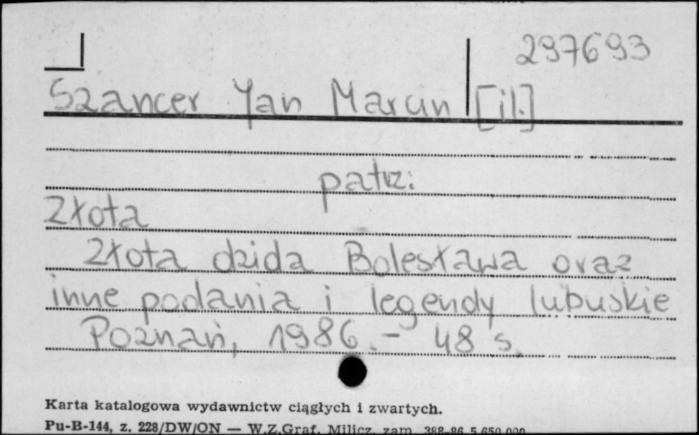 297693
Szancer Jan Marcin [il.]
patrz:
Złota
Złota dzida Bolesława oraz
inne podania i legendy lubuskie
Poznań, 1986. - 48 s.
Karta katalogowa wydawnictw ciągłych i zwartych.
Pu-B-144, z. 228/DW/ON — W.Z.Graf. Milicz, zam. 388-86 5.650.000